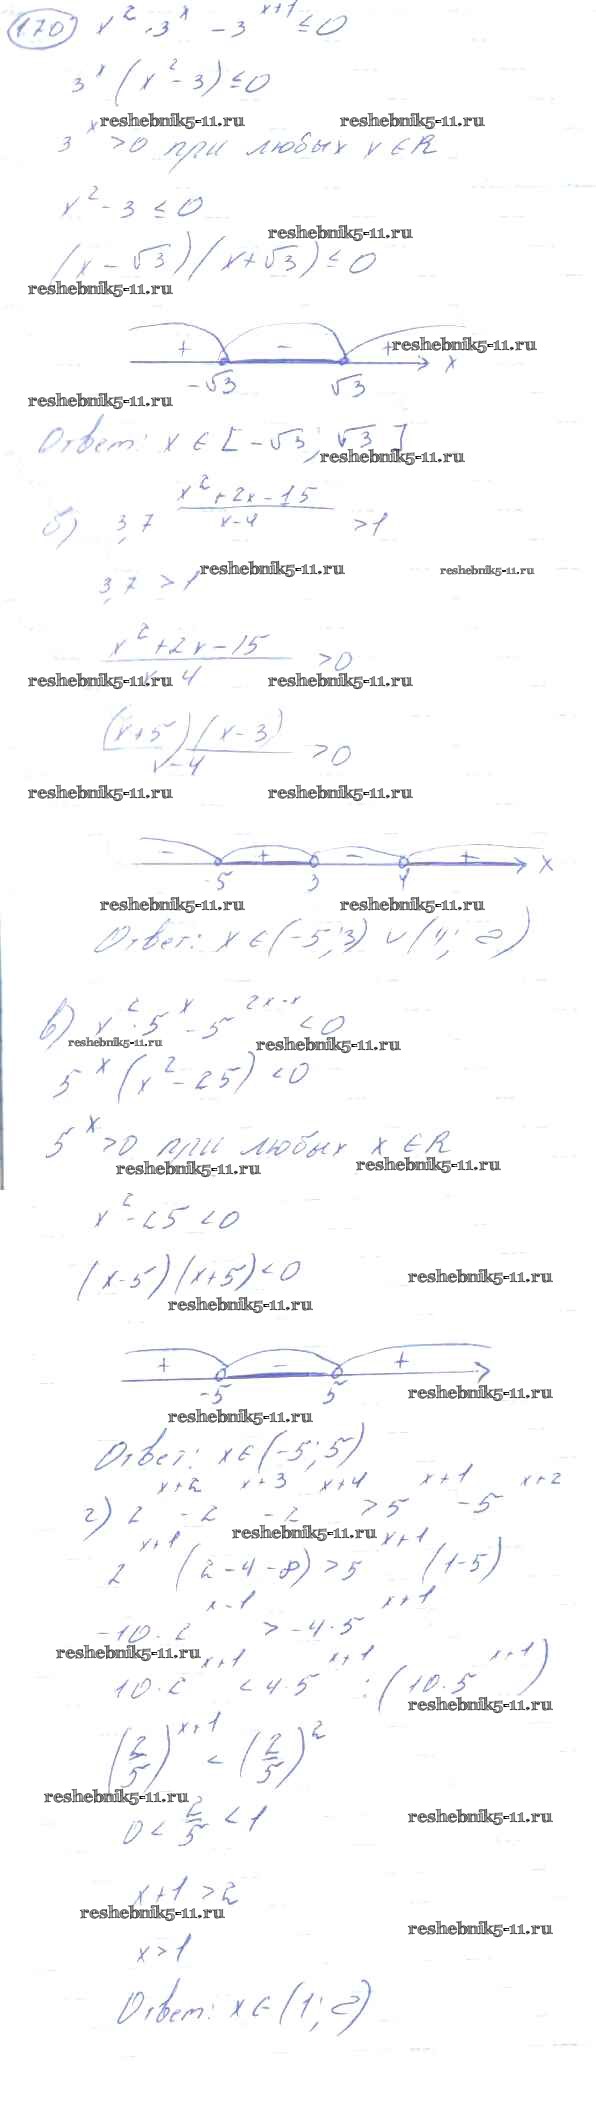 170) x² · 3^x - 3^(x+1) ≤ 0
3^x (x² - 3) ≤ 0
reshebnik5-11.ru reshebnik5-11.ru
3^x > 0 при любых x ∈ R
x² - 3 ≤ 0
reshebnik5-11.ru
(x - √3)(x + √3) ≤ 0
reshebnik5-11.ru
+ - + reshebnik5-11.ru x
-√3 √3
reshebnik5-11.ru
Ответ: x ∈ [-√3; √3]
reshebnik5-11.ru
б) 3,7^((x² + 2x - 15)/(x - 4)) > 1
reshebnik5-11.ru reshebnik5-11.ru
3,7 > 1
(x² + 2x - 15)/(x - 4) > 0
reshebnik5-11.ru reshebnik5-11.ru
(x + 5)(x - 3)/(x - 4) > 0
reshebnik5-11.ru reshebnik5-11.ru
- + - + x
-5 3 4
reshebnik5-11.ru reshebnik5-11.ru
Ответ: x ∈ (-5; 3) ∪ (4; ∞)
в) x² · 5^x - 5^(2x-x) < 0
reshebnik5-11.ru reshebnik5-11.ru
5^x (x² - 25) < 0
5^x > 0 при любых x ∈ R
reshebnik5-11.ru reshebnik5-11.ru
x² - 25 < 0
(x - 5)(x + 5) < 0 reshebnik5-11.ru
reshebnik5-11.ru
+ - +
-5 5 reshebnik5-11.ru
reshebnik5-11.ru
Ответ: x ∈ (-5; 5)
г) 2^(x+2) - 2^(x+3) - 2^(x+4) > 5^(x+1) - 5^(x+2)
reshebnik5-11.ru
2^(x+1) (2 - 4 - 8) > 5^(x+1) (1 - 5)
-10 · 2^(x-1) > -4 · 5^(x+1)
reshebnik5-11.ru
10 · 2^(x+1) < 4 · 5^(x+1) : (10 · 5^(x+1))
reshebnik5-11.ru
(2/5)^(x+1) < (2/5)²
reshebnik5-11.ru
0 < 2/5 < 1 reshebnik5-11.ru
x + 1 > 2
reshebnik5-11.ru
reshebnik5-11.ru
x > 1
Ответ: x ∈ (1; ∞)